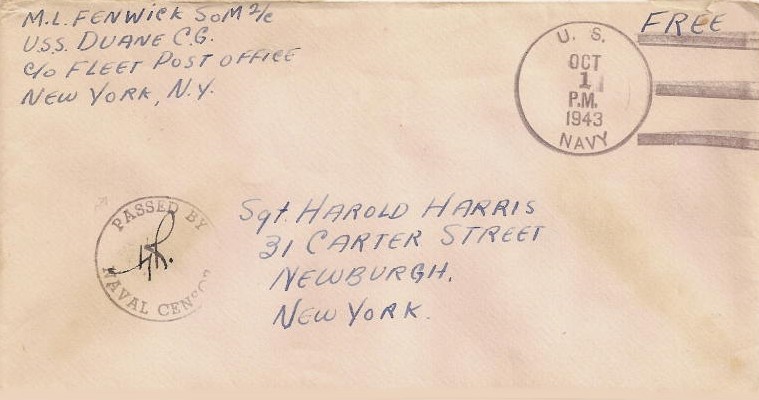 M.L. FENWICK SoM 2/c
U.S.S. DUANE C.G.
C/O FLEET POST OFFICE
NEW YORK, N.Y.
FREE
U. S.
OCT
1
P.M.
1943
NAVY
PASSED BY
NAVAL CENSOR
Sgt. HAROLD HARRIS
31 CARTER STREET
NEWBURGH.
NEW YORK.